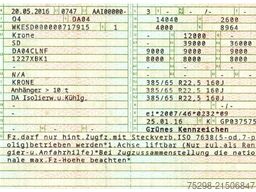 20.05.2016 0747 AAI00000-
04 DA04 14040 2600
WKESD000000717915 1 4000 8964
Krone - 12000 -
SD - 39000 36000
DA04CLNF - 9000 9000 9000
1227XBK1 - 9000 9000 9000
N/A
KRONE 385/65 R22.5 160J
Anhänger > 10 t 385/65 R22.5 160J
DA Isolierw.u.Kühlg. 385/65 R22.5 160J
- e1*2007/46*0232*09
25.01.16 K GP037575
Grünes Kennzeichen
Fz.darf nur hint.Zugfz.mit Steckverb.ISO 7638
olig)betrieben werden*1 Achse liftbar (Nur zul.als Ran
gier-u.Anfahrhilfe)*Bei Zugzusammenstellung die natio
nale max.Fz-Hoehe beachten*
75298-21506847